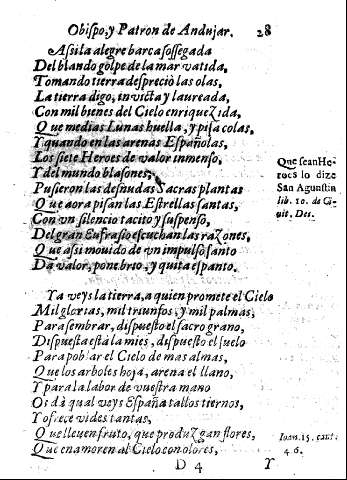 Obispo, y Patron de Andujar. 28
Assi la alegre barca sossegada
Del blando golpe de la mar vatida,
Tomando tierra despreciò las olas,
La tierra digo, invicta y laureada,
Con mil bienes del Cielo enriquezida,
Que medias Lunas huella, y pisa colas,
Y quando en las arenas Españolas,
Los siete Heroes de valor inmenso,
Y del mundo blasones,
Pusieron las desnudas sacras plantas
Que aora pisan las Estrellas santas,
Con un silencio tacito y suspenso,
Del gran Eufrasio escuchan las razones,
Que assi mouido de vn impulso santo
Da valor, pone brio, y quita espanto.
Que sean He-
roes lo dize
San Agustin
lib. 10. de Ci-
uit. Dei.
Ya veys la tierra, a quien promete el Cielo
Mil glorias, mil triunfos, y mil palmas,
Para sembrar, dispuesto el sacro grano,
Dispuesta està la mies, dispuesto el suelo
Para poblar el Cielo de mas almas,
Que los arboles hoja, arena el llano,
Y para la labor de vuestra mano
Os dà qual veys España tallos tiernos,
Y ofrece vides tantas,
Que lleuen fruto, que produzgan flores,
Que enamoren al Cielo con olores,
Ioan. 15. cant.
4. 6.
D 4 Y